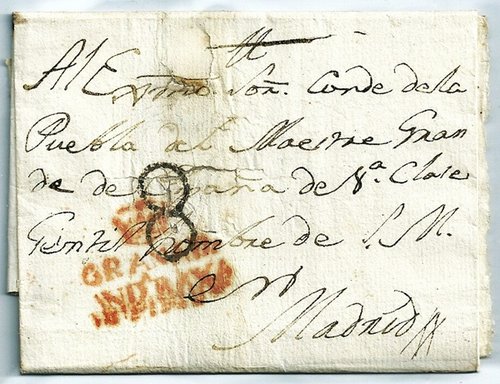 Al Exmo Señ. Conde de la
Puebla del Maestre Gran
de de España de 1.ª Clase
Gentil hombre de S. M.
8
GRA
en
Madrid